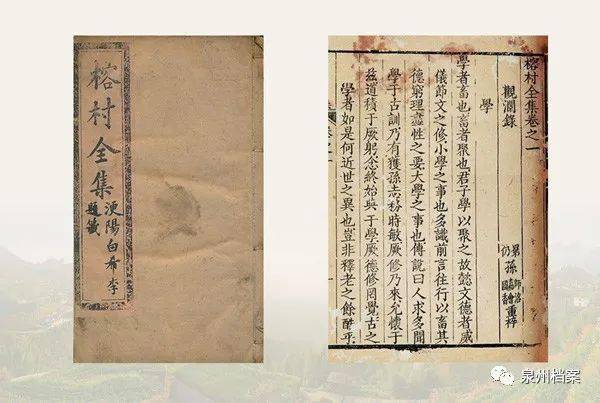 榕村全集
浭陽白希李
題籤
榕村全集卷之一
觀瀾錄
孫
重梓
學
學者畜也畜者聚也君子學以聚之故懿文德者威
儀節文之修小學之事也多識前言往行以畜其
德窮理盡性之要大學之事也傳說曰人求多聞
學于古訓乃有獲孫志務時敏厥修乃來允懷于
茲道積于厥躬念終始典于學厥德修罔覺古之
學者如是何近世之異也豈非釋老之餘酷乎
泉州档案